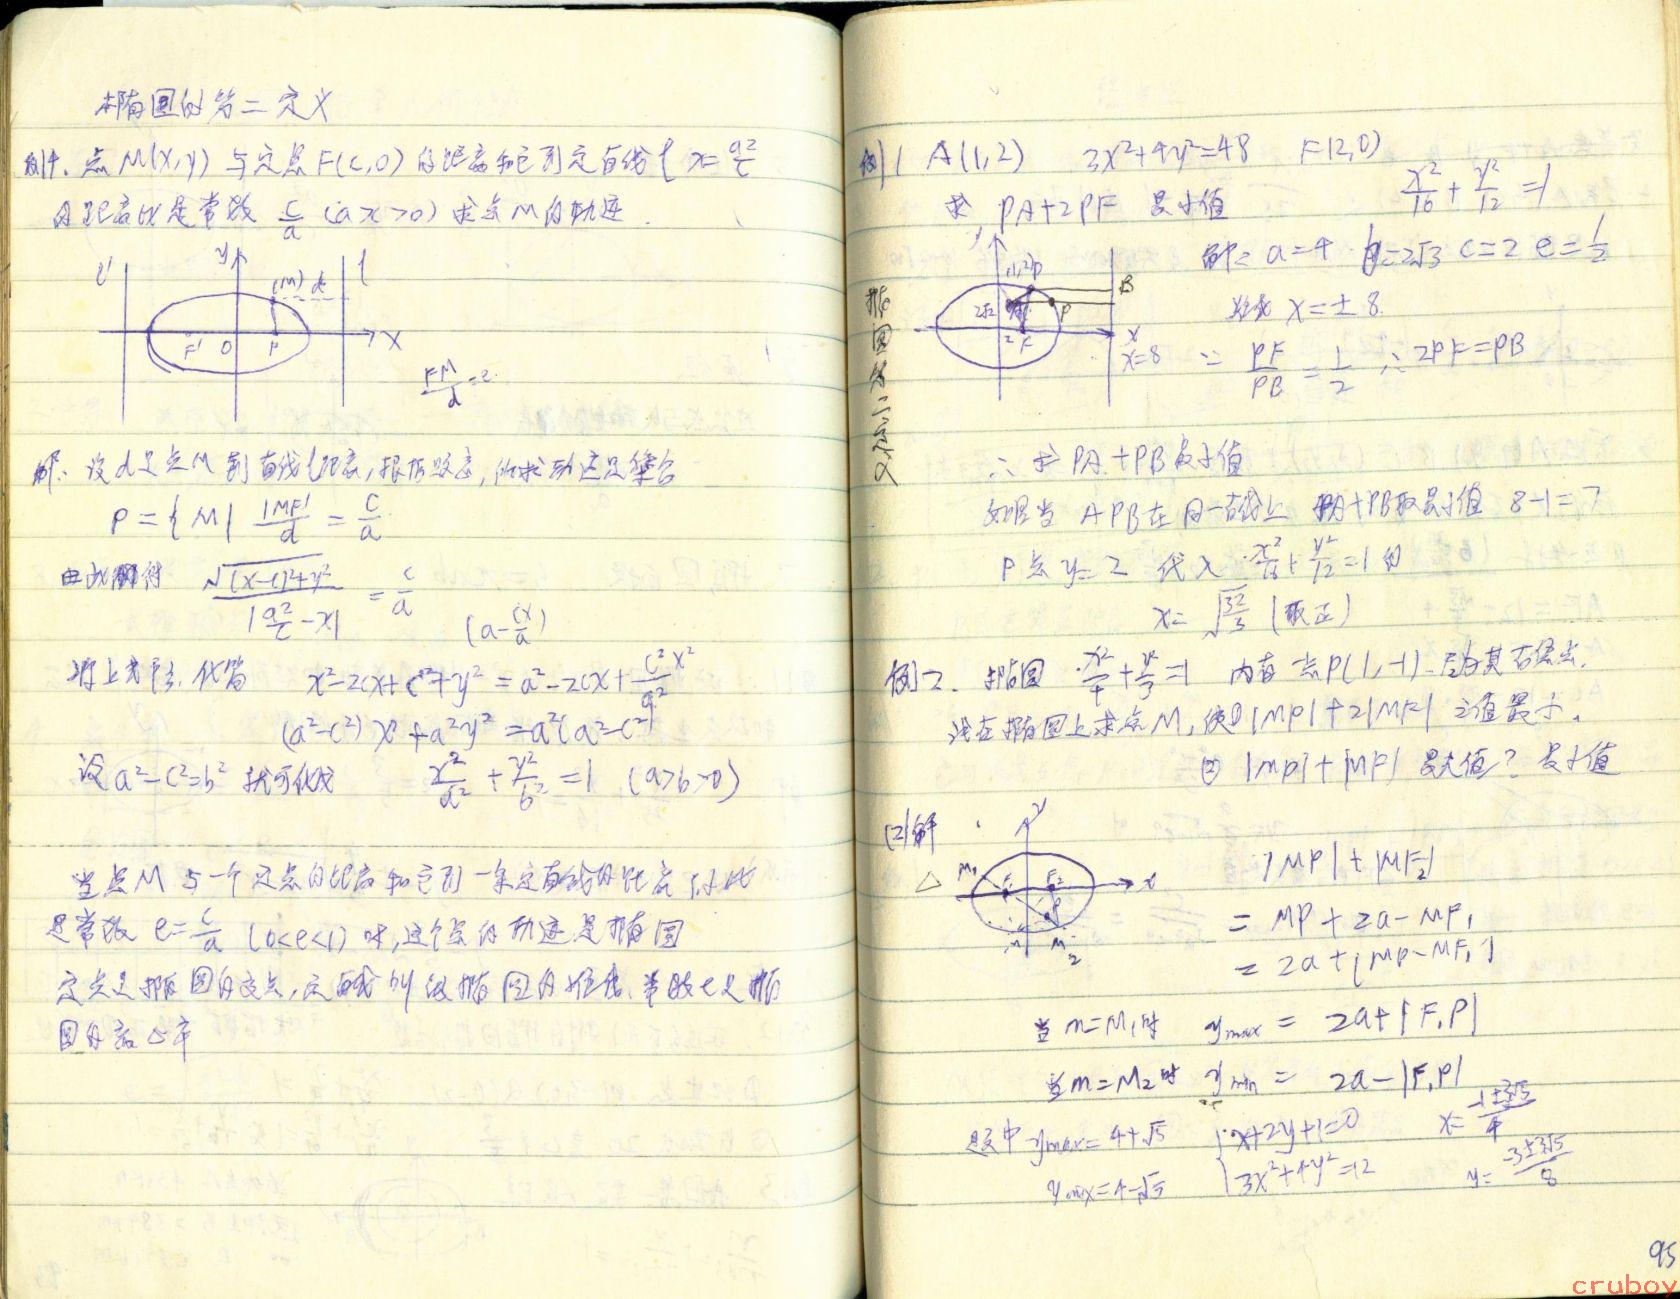 椭圆的第二定义
例4. 点M(x,y)与定点F(c,0)的距离和它到定直线l x=a²/c
的距离比是常数 c/a (a>c>0) 求点M的轨迹.
l' y (M) d l
F' O F x
FM/d=e
解: 设d是点M到直线l距离,根据题意,所求轨迹是集合
P={M| |MF|/d = c/a
由此解得 √((x-c)²+y²)/|a²/c-x| = c/a
(a-cx/a)
将上式平方,化简 x²-2cx+c²+y²=a²-2cx+c²x²/a²
(a²-c²)x²+a²y²=a²(a²-c²)
设a²-c²=b² 就可化成 x²/a²+y²/b²=1 (a>b>0)
当点M与一个定点的距离和它到一条定直线的距离之比
是常数 e=c/a (0<e<1)时,这个点的轨迹是椭圆
定点是椭圆的焦点,定直线叫做椭圆的准线,常数e是椭
圆的离心率
椭圆第二定义
例1 A(1,2) 3x²+4y²=48 F(2,0)
求 PA+2PF 最小值 x²/16+y²/12=1
解: a=4 b=2√3 c=2 e=1/2
准线 x=±8
B P F x
x=8 ∵ PF/PB=1/2 ∴ 2PF=PB
∴ 求 PA+PB最小值
如图当 APB在同一直线上 PA+PB取最小值 8-1=7
P点y=2 代入 x²/16+y²/12=1的
x=√(32/3) (取正)
例二. 椭圆 x²/4+y²/3=1 内有点P(1,-1). F为其右焦点.
试在椭圆上求点M,使① |MP|+2|MF| 之值最小.
② |MP|+|MF| 最大值? 最小值
(2)解
y x M₁ F₁ F₂ P M M₂
|MP|+|MF₂|
=MP+2a-MF₁
=2a+(MP-MF₁)
当m=M₁时 ymax = 2a+|F₁P|
当m=M₂时 ymin = 2a-|F₁P|
题中ymax=4+√5 {x+2y+1=0 x=(-1±3√5)/4
ymix=4-√5 3x²+4y²=12 y=(-3±3√5)/8
95
cruboy